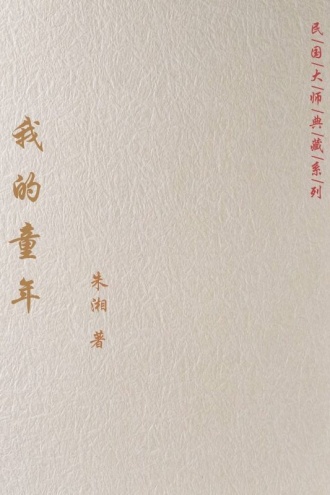 民国大师典藏系列
朱湘 著
我的童年